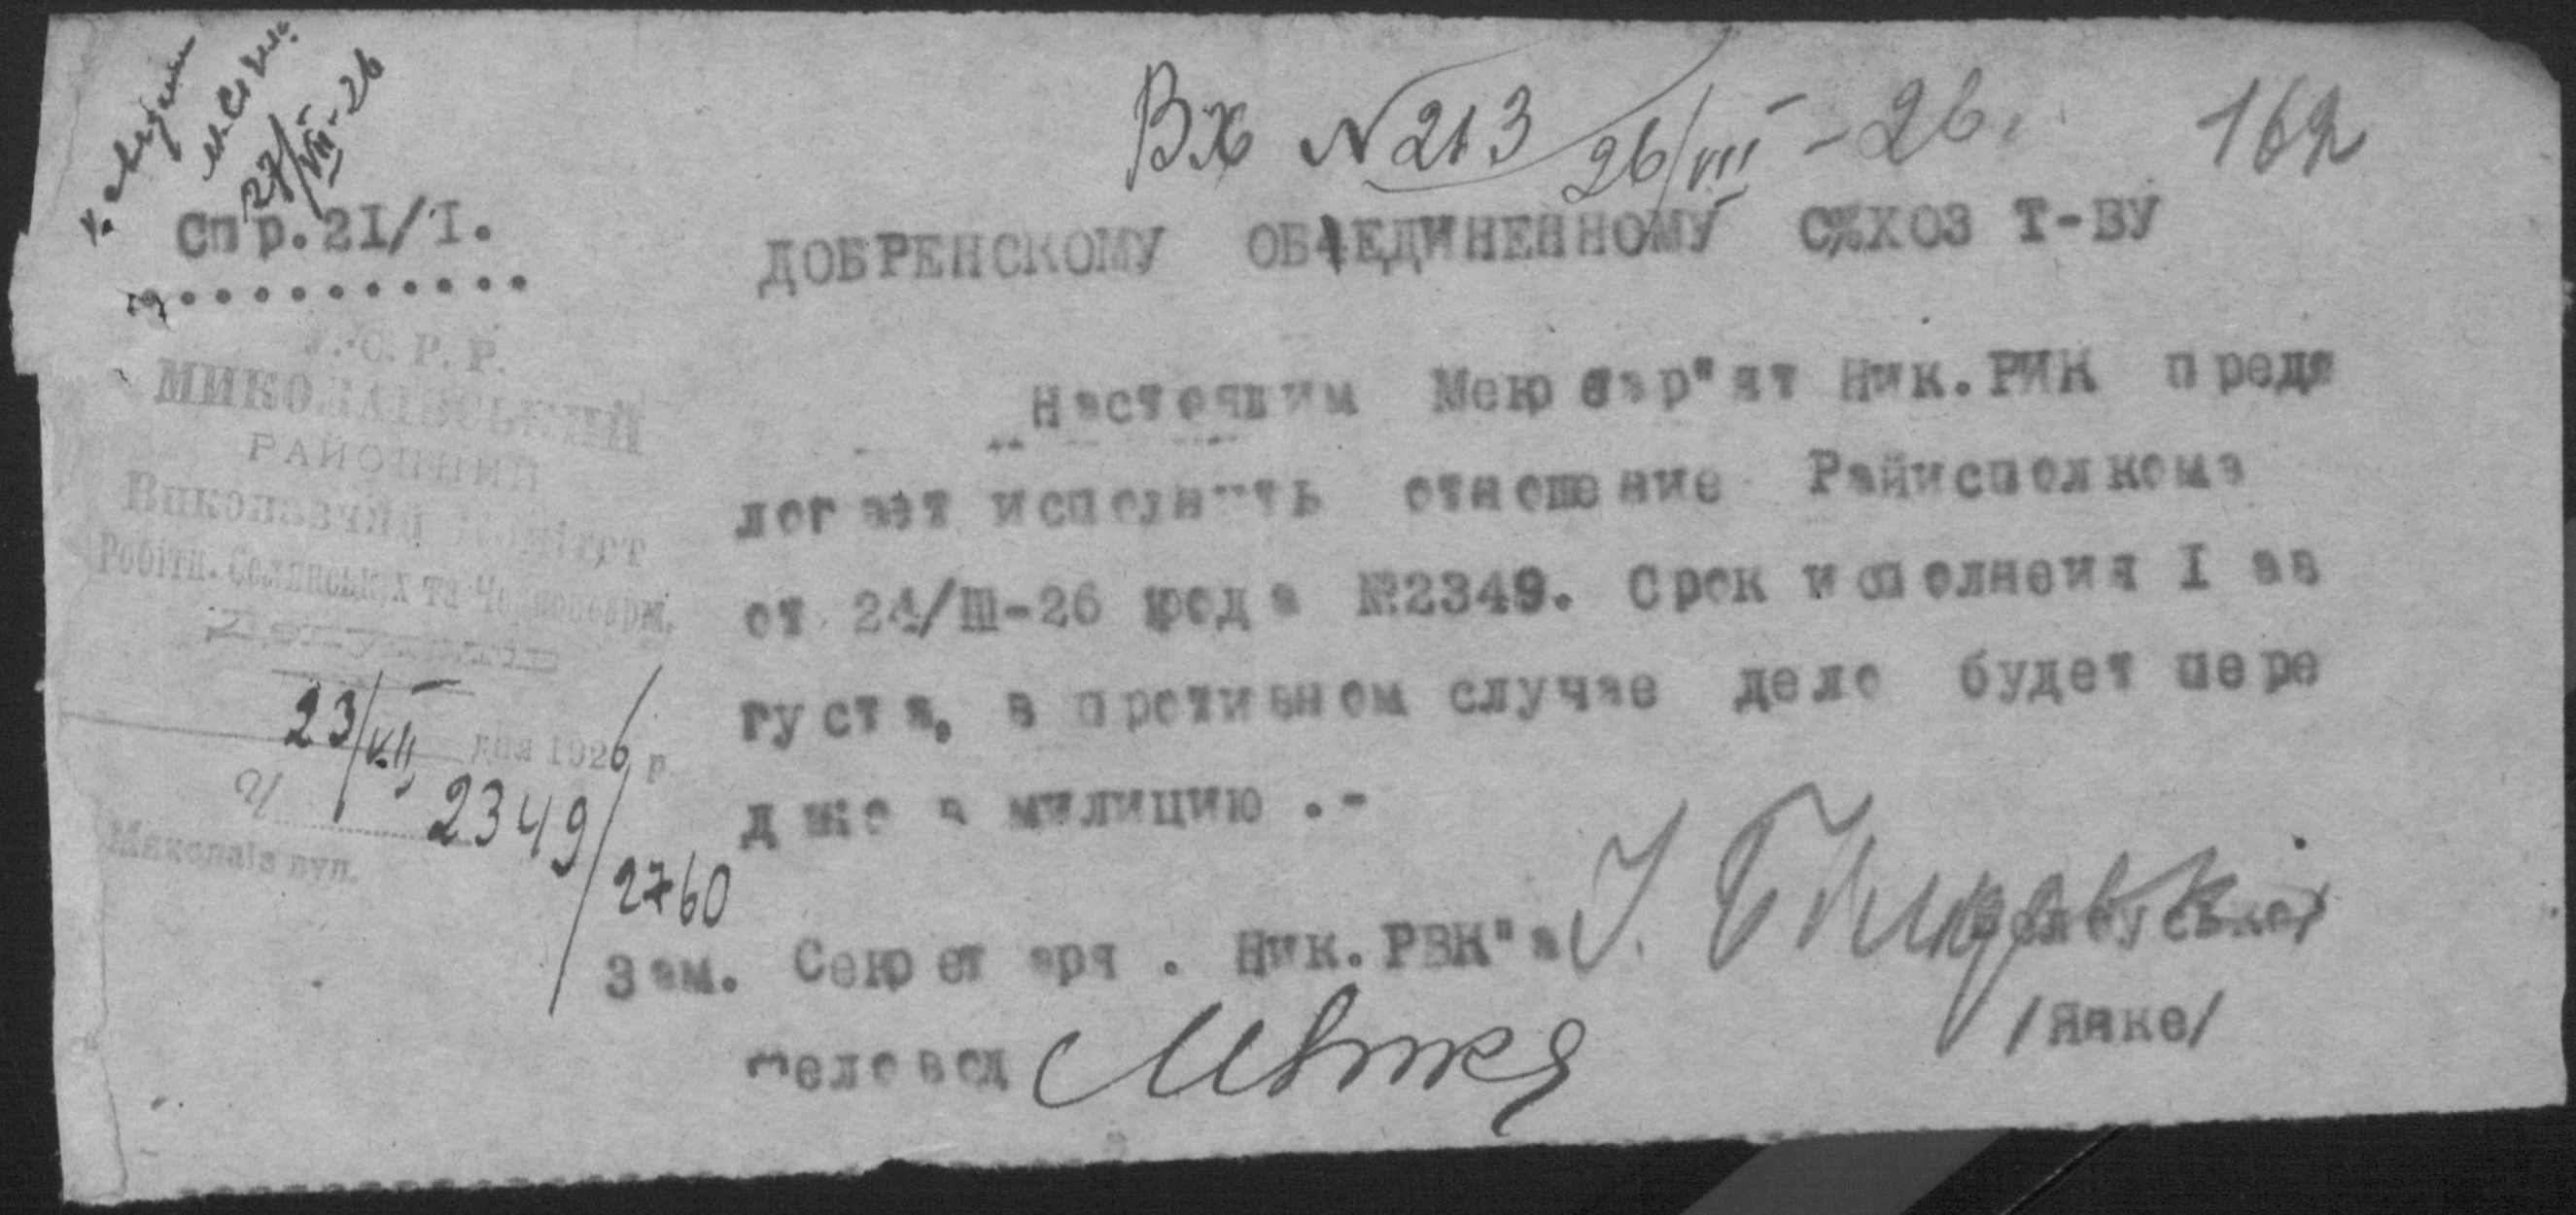 27/VII-26
Вх № 213 26/VII-26. 162
Спр. 21/I.
ДОБРЕНСКОМУ ОБ'ЕДИНЕННОМУ СХОЗ Т-ВУ
У.С.Р.Р.
МИКОЛАІВСЬКИЙ
РАЙОННИЙ
Виконавчий Комітет
Робітн. Селянських та Червоноарм.
Депутатів
23/VII дня 1926 р.
2349/2760
Миколаїв вул.
Настоящим Ник.РИК пред
логает исполнить отношение Райисполкома
от 24/III-26 года №2349. Срок исполнения I ав
густа, в противном случае дело будет пере
дано в милицию .-
Зам. Секретаря . Ник.РВК"а
Деловод /Янке/